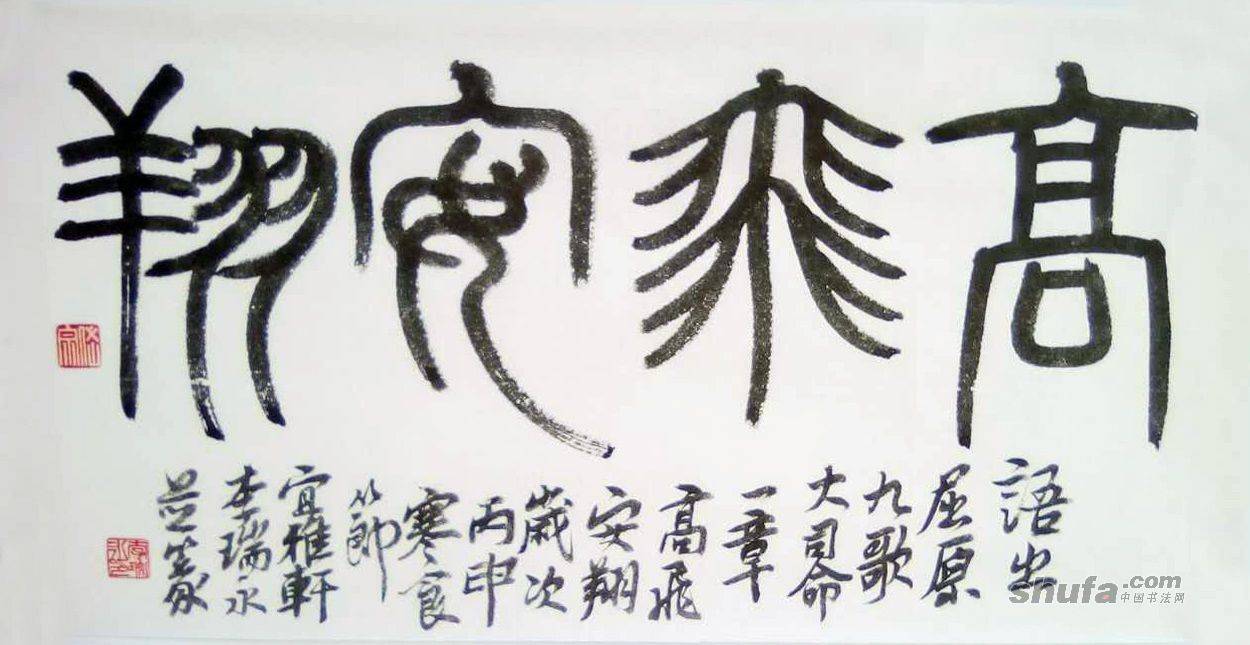 高飛安翔
語出
屈原
九歌
大司命
一章
高飛
安翔
歲次
丙申
寒食
節
宜雅軒
李瑞永
並篆
shufa.com
中国书法网